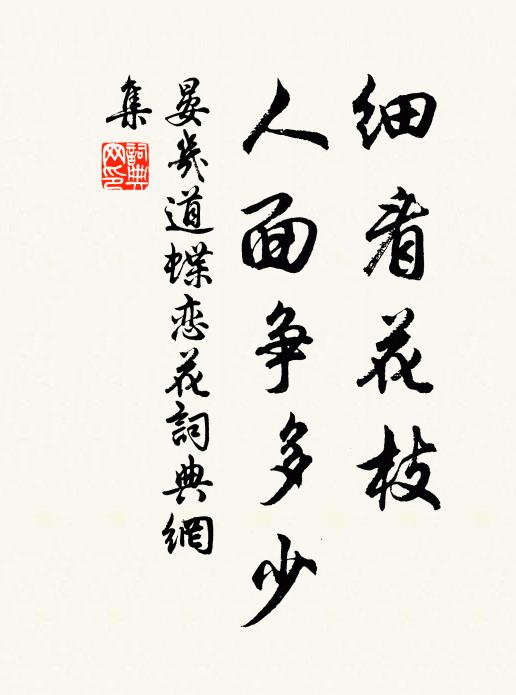 细看花枝
人面争多少
晏几道蝶恋花詞典網
集
詞典网印